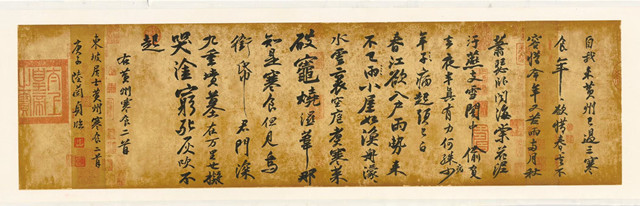 自我來黃州已過三寒
食年〻欲惜春春去不
容惜今年又苦雨兩月秋
蕭瑟臥聞海棠花泥
汙燕支雪闇中偷負
去夜半真有力何殊少
年子病起頭已白
春江欲入戶雨勢來
不已雨小屋如漁舟濛〻
水雲裏空庖煮寒菜
破竈燒濕葦那
知是寒食但見烏
銜帋君門深
九重墳墓在万里也擬
哭塗窮死灰吹不
起
右黃州寒食二首
東坡居士黃州寒食二首
庚子